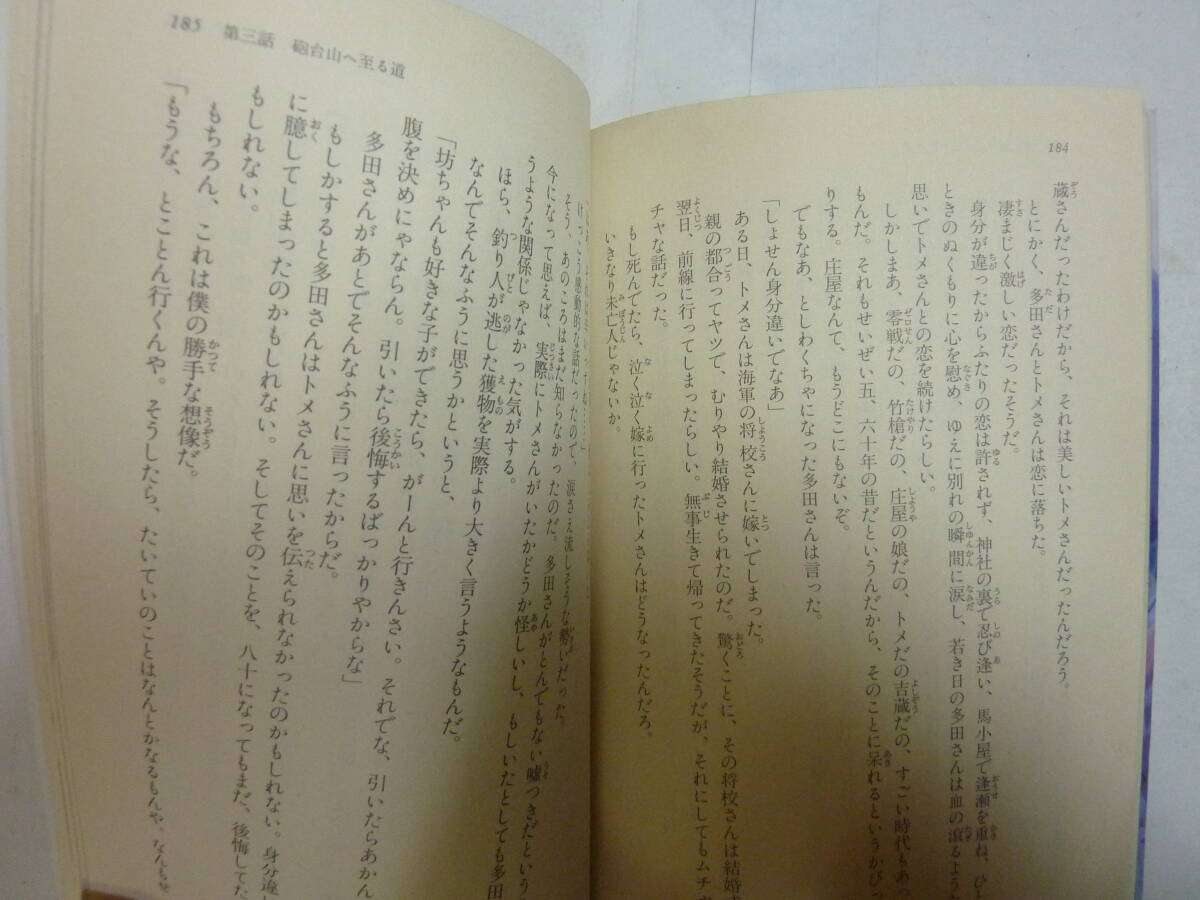 184
蔵さんだったわけだから、それは美しいトメさんだったんだろう。
とにかく、多田さんとトメさんは恋に落ちた。
凄まじく激しい恋だったそうだ。
身分が違ったからふたりの恋は許されず、神社の裏で忍び逢い、馬小屋で逢瀬を重ね、ひと
ときのぬくもりに心を慰め、ゆえに別れの瞬間に涙し、若き日の多田さんは血の滾るような
思いでトメさんとの恋を続けたらしい。
しかしまあ、零戦だの、竹槍だの、庄屋の娘だの、トメだの吉蔵だの、すごい時代もあっ
もんだ。それもせいぜい五、六十年の昔だというんだから、そのことに呆れるというかび
りする。庄屋なんて、もうどこにもないぞ。
でもなあ、としわくちゃになった多田さんは言った。
「しょせん身分違いでなあ」
ある日、トメさんは海軍の将校さんに嫁いでしまった。
親の都合ってヤツで、むりやり結婚させられたのだ。驚くことに、その将校さんは結婚
翌日、前線に行ってしまったらしい。無事生きて帰ってきたそうだが、それにしてもムチ
チャな話だった。
もし死んでたら、泣く泣く嫁に行ったトメさんはどうなったんだろ。
いきなり未亡人じゃないか。
185 第三話 砲台山へ至る道
けっこう感動的な話だったので、涙さえ流しそうな勢いだった。
そう、あのころはまだ知らなかったのだ。多田さんがとんでもない嘘つきだという
今になって思えば、実際にトメさんがいたかどうか怪しいし、もしいたとしても多田
うような関係じゃなかった気がする。
ほら、釣り人が逃した獲物を実際より大きく言うようなもんだ。
なんでそんなふうに思うかというと、
「坊ちゃんも好きな子ができたら、がーんと行きんさい。それでな、引いたらあかん
腹を決めにゃならん。引いたら後悔するばっかりやからな」
多田さんがあとでそんなふうに言ったからだ。
もしかすると多田さんはトメさんに思いを伝えられなかったのかもしれない。身分違
に臆してしまったのかもしれない。そしてそのことを、八十になってもまだ、後悔してた
もしれない。
もちろん、これは僕の勝手な想像だ。
「もうな、とことん行くんや。そうしたら、たいていのことはなんとかなるもんや。なんもせ